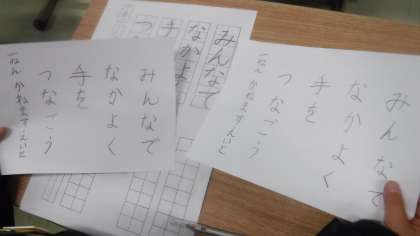 みんなで
なかよく
手を
つなごう
一ねん かねますえいと
みんなで
なかよく
手を
つなごう
一ねん かねますえいと
みんなで
なかよ
手
つ